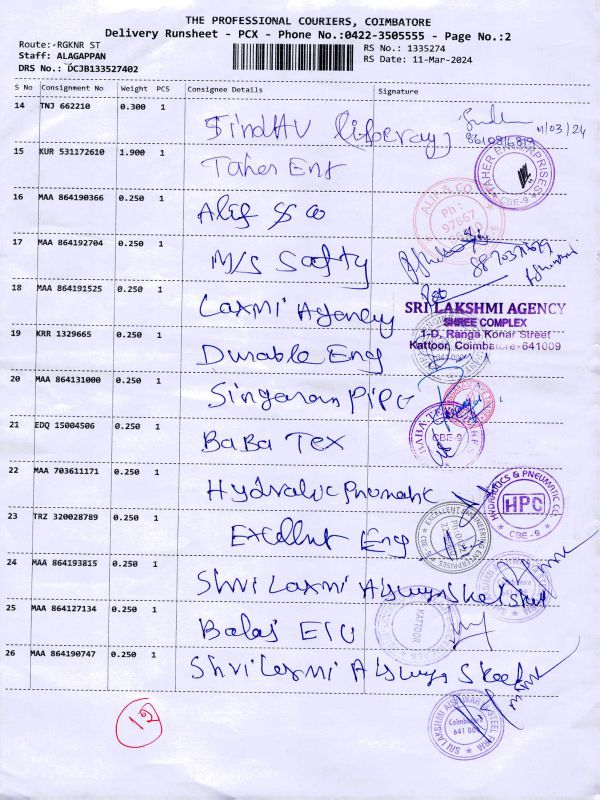 THE PROFESSIONAL COURIERS, COIMBATORE
Delivery Runsheet - PCX - Phone No.:0422-3505555 - Page No.:2
Route: RGKNR ST
Staff: ALAGAPPAN
DRS No.: DCJB133527402
RS No.: 1335274
RS Date: 11-Mar-2024
S No Consignment No Weight PCS Consignee Details Signature
14 TNJ 662210 0.300 1 SindHU
11/03/24
15 KUR 531172610 1.900 1 Taher Eng
TAHER ENTERPRISES CBE-9
16 MAA 864190366 0.250 1 Alif & Co
ALIF & CO Ph: 97667
17 MAA 864192704 0.250 1 M/S Safty
18 MAA 864191525 0.250 1 Laxmi Agency
SRI LAKSHMI AGENCY
SHREE COMPLEX
1-D, Ranga Konar Street
Kattoor, Coimbatore-641009
19 KRR 1329665 0.250 1 Durable Eng
20 MAA 864131000 0.250 1 Singaram PiPe
21 EDQ 15004506 0.250 1 BaBa Tex
BABA CBE-9
22 MAA 703611171 0.250 1 Hydraluc Pnumatic
HYDRAULICS & PNEUMATIC CO HPC CBE-9
23 TRZ 320028789 0.250 1 Excellent Eng
EXCELLENT ENGINEERING ENTERPRISES
24 MAA 864193815 0.250 1 Shri Laxmi
25 MAA 864127134 0.250 1 Balaj
KATTOOR
26 MAA 864190747 0.250 1 Shri Laxmi
SRI LAKSHMI AISWARYA STEEL Coimbatore 641 009